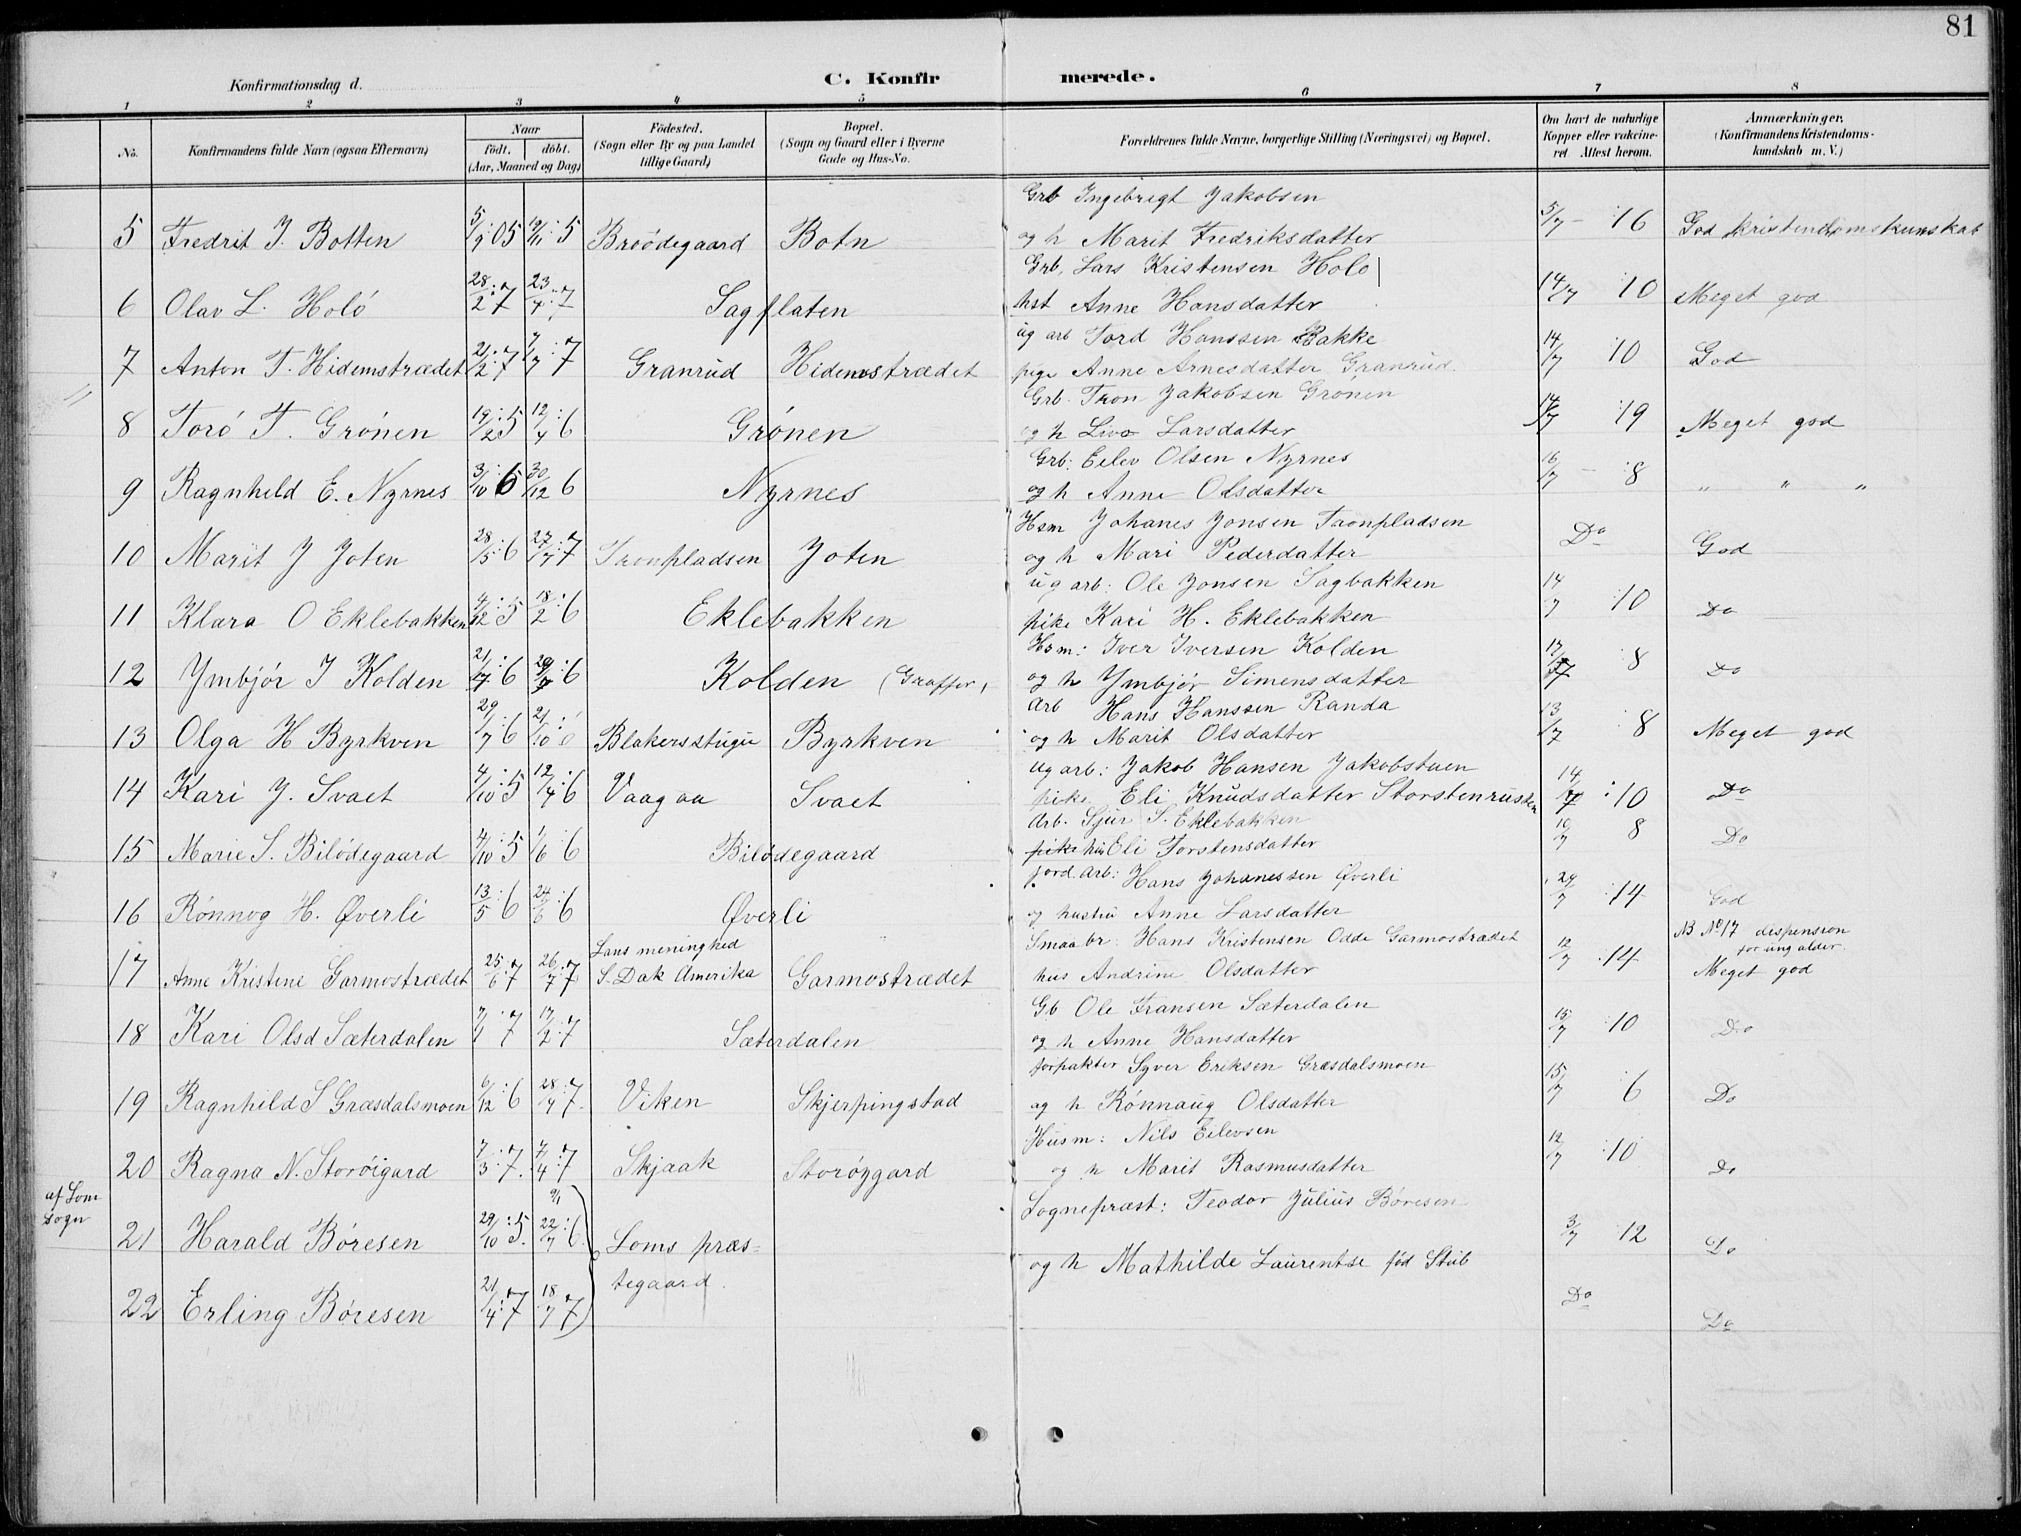 81
Konfirmationsdag d.
C. Konfirmerede.
1 2 3 4 5 6 7 8
No. Konfirmandens fulde Navn (ogsaa Efternavn) Naar født. døbt. (Aar, Maaned og Dag) Fødested. (Sogn eller By og paa Landet tillige Gaard) Bopæl. (Sogn og Gaard eller i Byerne Gade og Hus-No. Forældrenes fulde Navne, borgerlige Stilling (Næringsvei) og Bopæl. Om havt de naturlige Kopper eller vakcineret Attest herom. Anmærkninger. (Konfirmandens Kristendomskundskab m. V.)
Grb Ingebrigt Jakobsen
5 Fredrit J. Botten 5/9 : 05 19/11 : 5 Broødegaard Botn og h Marit Fredriksdatter 5/7 - : 16 God kristendomskunskab
Grb. Lars Kristensen Holo
6 Olav L. Holó 28/2 : 7 23/4 : 7 Sagflaten hst Anne Hansdatter 14/7 10 Meget god
ug arb Tord Hanssen Bakke
7 Anton T. Hidemstrædet 21/2 : 7 7/7 : 7 Granrud Hidemstrædet pige Anne Arnesdatter Granrud. 14/7 : 10 God
Grb. Tron Jakobsen Grønen
8 Toró T. Grónen 19/2 : 5 12/4 : 6 Grónen og h Liva Larsdatter 14/7 : 19 Meget god
Grb: Eilev Olsen Nyrnes
9 Ragnheld E. Nyrnes 3/10 : 6 30/12 6 Nyrnes og h Anne Olsdatter 16/7 - : 8 " " "
Hsm Johanes Jonsen Tronpladsen
10 Marit J Joten 28/5 : 6 27/7 : 7 Tronpladsen Joten og h Mari Pederdatter Do God
ug arb: Ole Jonsen Sagbakken
11 Klara O Eklebakken 4/12 : 5 18/2 : 6 Eklebakken pike Kari H. Eklebakken 14/7 : 10 Do
Hsm: Iver Iversen Kolden
12 Ymbjór I Kolden 21/7 : 6 29/7 : 6 Kolden (Graffer, og h Ymbjór Simensdatter 17/7 : 8 Do
Arb Hans Hanssen Randa
13 Olga H Byrkven 29/7 : 6 21/10 : 6 Blakersstugu Byrkven og h Marit Olsdatter 13/7 : 8 Meget god
Ug arb: Jakob Hansen Jakobstuen
14 Kari J. Svaet 4/10 : 5 12/4 : 6 Vaagaa Svaet pike Eli Knudsdatter Storstenrusten 14/7 : 10 Do
Arb. Sjur S. Eklebakken
15 Marie S. Bilódegaard 4/10 : 5 1/6 : 6 Bilódegaard pike hus Eli Torstensdatter 10/7 8 Do
jord. arb: Hans Johanessen Øverli
16 Rónnog H. Øverli 13/5 : 6 24/6 : 6 Øverli og hustru Anne Larsdatter 29/7 : 14 God
Lans meninghed Smaabr: Hans Kristensen Odde Garmostrædet NB No 17 dispension for ung alder.
17 Anne Kristene Garmostrædet 25/6 : 7 26/7 : 7 S. Dak Amerika Garmostrædet hus Andrine Olsdatter 12/7 : 14 Meget god
Gb Ole Fransen Sæterdalen
18 Kari Olsd Sæterdalen 7/1 : 7 17/2 : 7 Sæterdalen og h Anne Hansdatter 15/7 : 10 Do
forpakter Syver Eriksen Græsdalsmoen
19 Ragnhild S Græsdalsmoen 6/12 : 6 28/4 : 7. Viken Skjerpingstad og h Rónnaug Olsdatter 15/7 : 6 Do
Husm: Nils Eilevsen
20 Ragna N. Storóigard 7/3 : 7. 7/4 : 7 Skjaak Storóygard og h Marit Rasmusdatter 12/7 : 10 Do
af Lom sogn 9/1 Sognepræst: Teodor Julius Børesen
21 Harald Børesen 29/10 : 5. 22/7 : 6. Loms præs= og h Mathilde Laurentse fød Stub 3/7 12 Do
tegaard.
22 Erling Børesen 21/4 : 7 18/7 7 Do Do